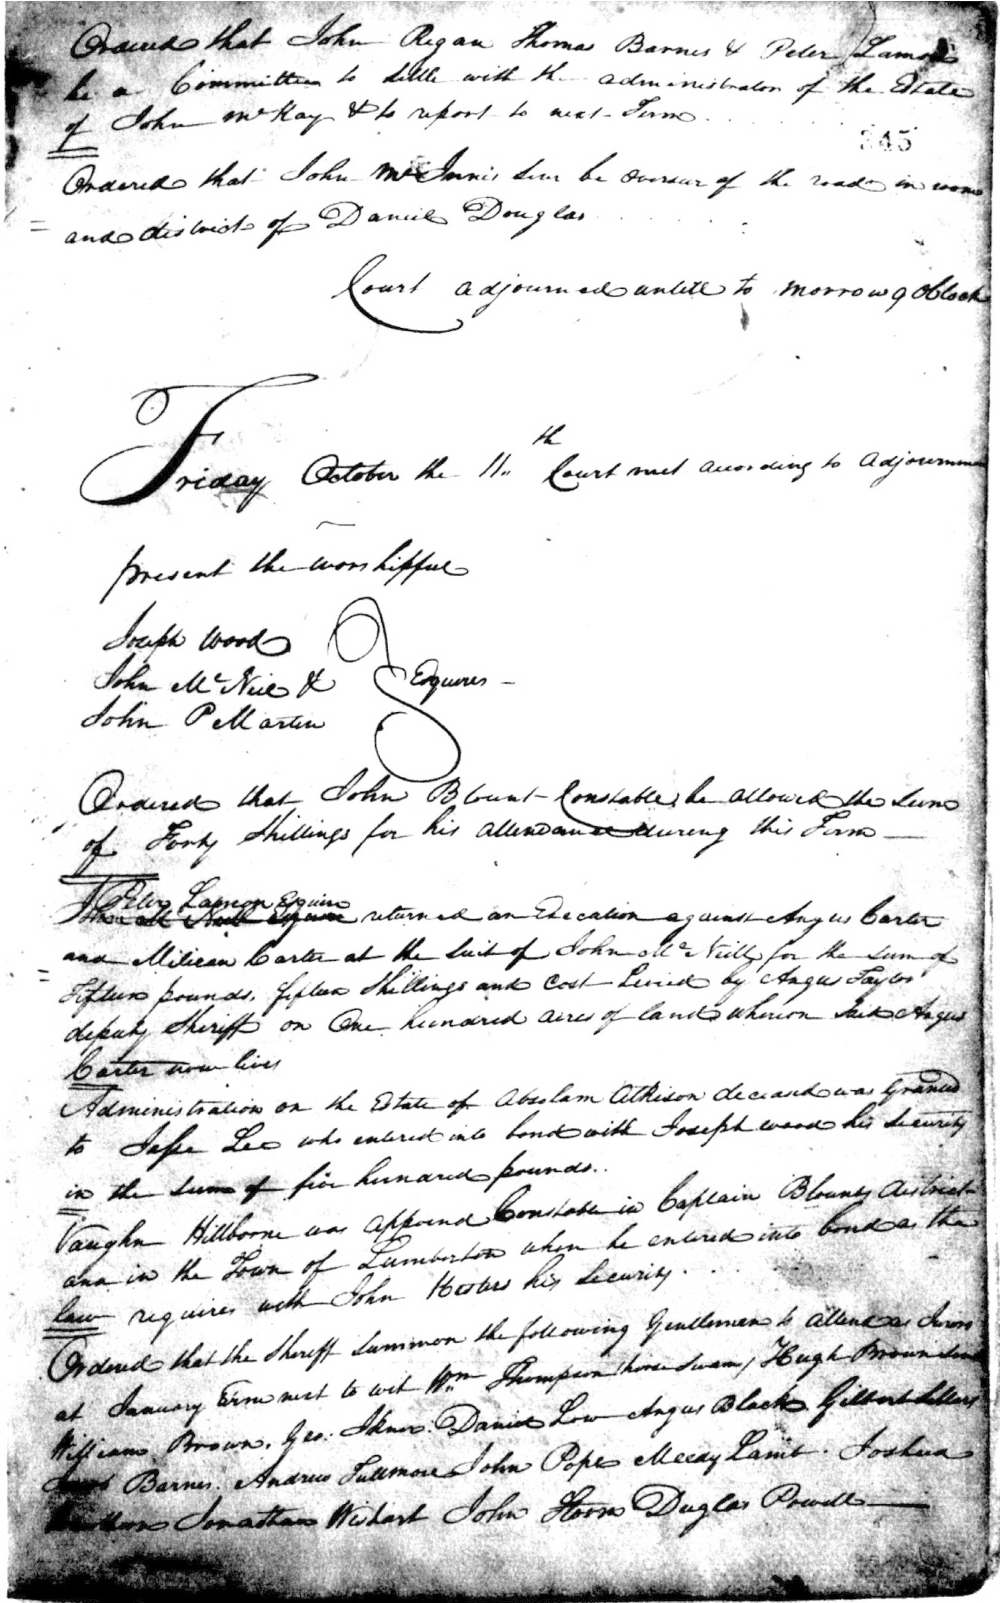 Ordered that John Regan Thomas Barnes & Peter Lamon
be a Committee to settle with the administrator of the Estate
of John McKay & to report to next Term
345
Ordered that John McInnis Senr be Overseer of the road in room
and district of Daniel Douglas
Court adjourned untill to morrow 9 OClock
Friday October the 11th Court met according to adjournment
present the worshipful
Joseph Wood
John McNeil & Esquires
John P Martin
Ordered that John Blount Constable be allowed the Sum
of Forty Shillings for his attendance during this Term
Peter Lamon Esquire
returned an Execution against Angus Carter
and Milican Carter at the Suit of John McNeill for the sum of
Fifteen pounds, fifteen Shillings and Cost Levied by Angus Taylor
deputy Sheriff on One hundred acres of land whereon Said Angus
Carter now lives
Administration on the Estate of Absolam Atkison deceased was Granted
to Jesse Lee who entered into bond with Joseph wood his Security
in the Sum of five hundred pounds..
Vaughn Hillborne was appoined Constable in Captain Blounts district
and in the Town of Lumberton when he entered into bond as the
law requires with John Hesters his Security.
Ordered that the Sheriff Summon the following Gentleman to attend as Jurors
at January Term next to wit Wm Thompson (horse Swam) Hugh Brown Senr
William Brown. Geo. Ikner. Daniel Low Angus Black Gilbert Sellars
Barnes. Andrew Tullmore John Pope Mccoy Lamb. Joshua
Jonathan Wishart John Horn Duglas Powell